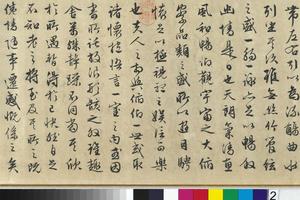 帶左右引以爲流觴曲水
列坐其次雖無絲竹管絃
之盛一觴一詠亦足以暢敘
幽情是日也天朗氣清惠
風和暢仰觀宇宙之大俯
察品類之盛所以遊目騁
懷足以極視聽之娛信可樂
也夫人之相與俯仰一世或取
諸懷抱悟言一室之內或因
寄所託放浪形骸之外雖趣
舍萬殊靜躁不同當其欣
於所遇暫得於己快然自足
不知老之將至及其所之既
倦情隨事遷感慨係之矣